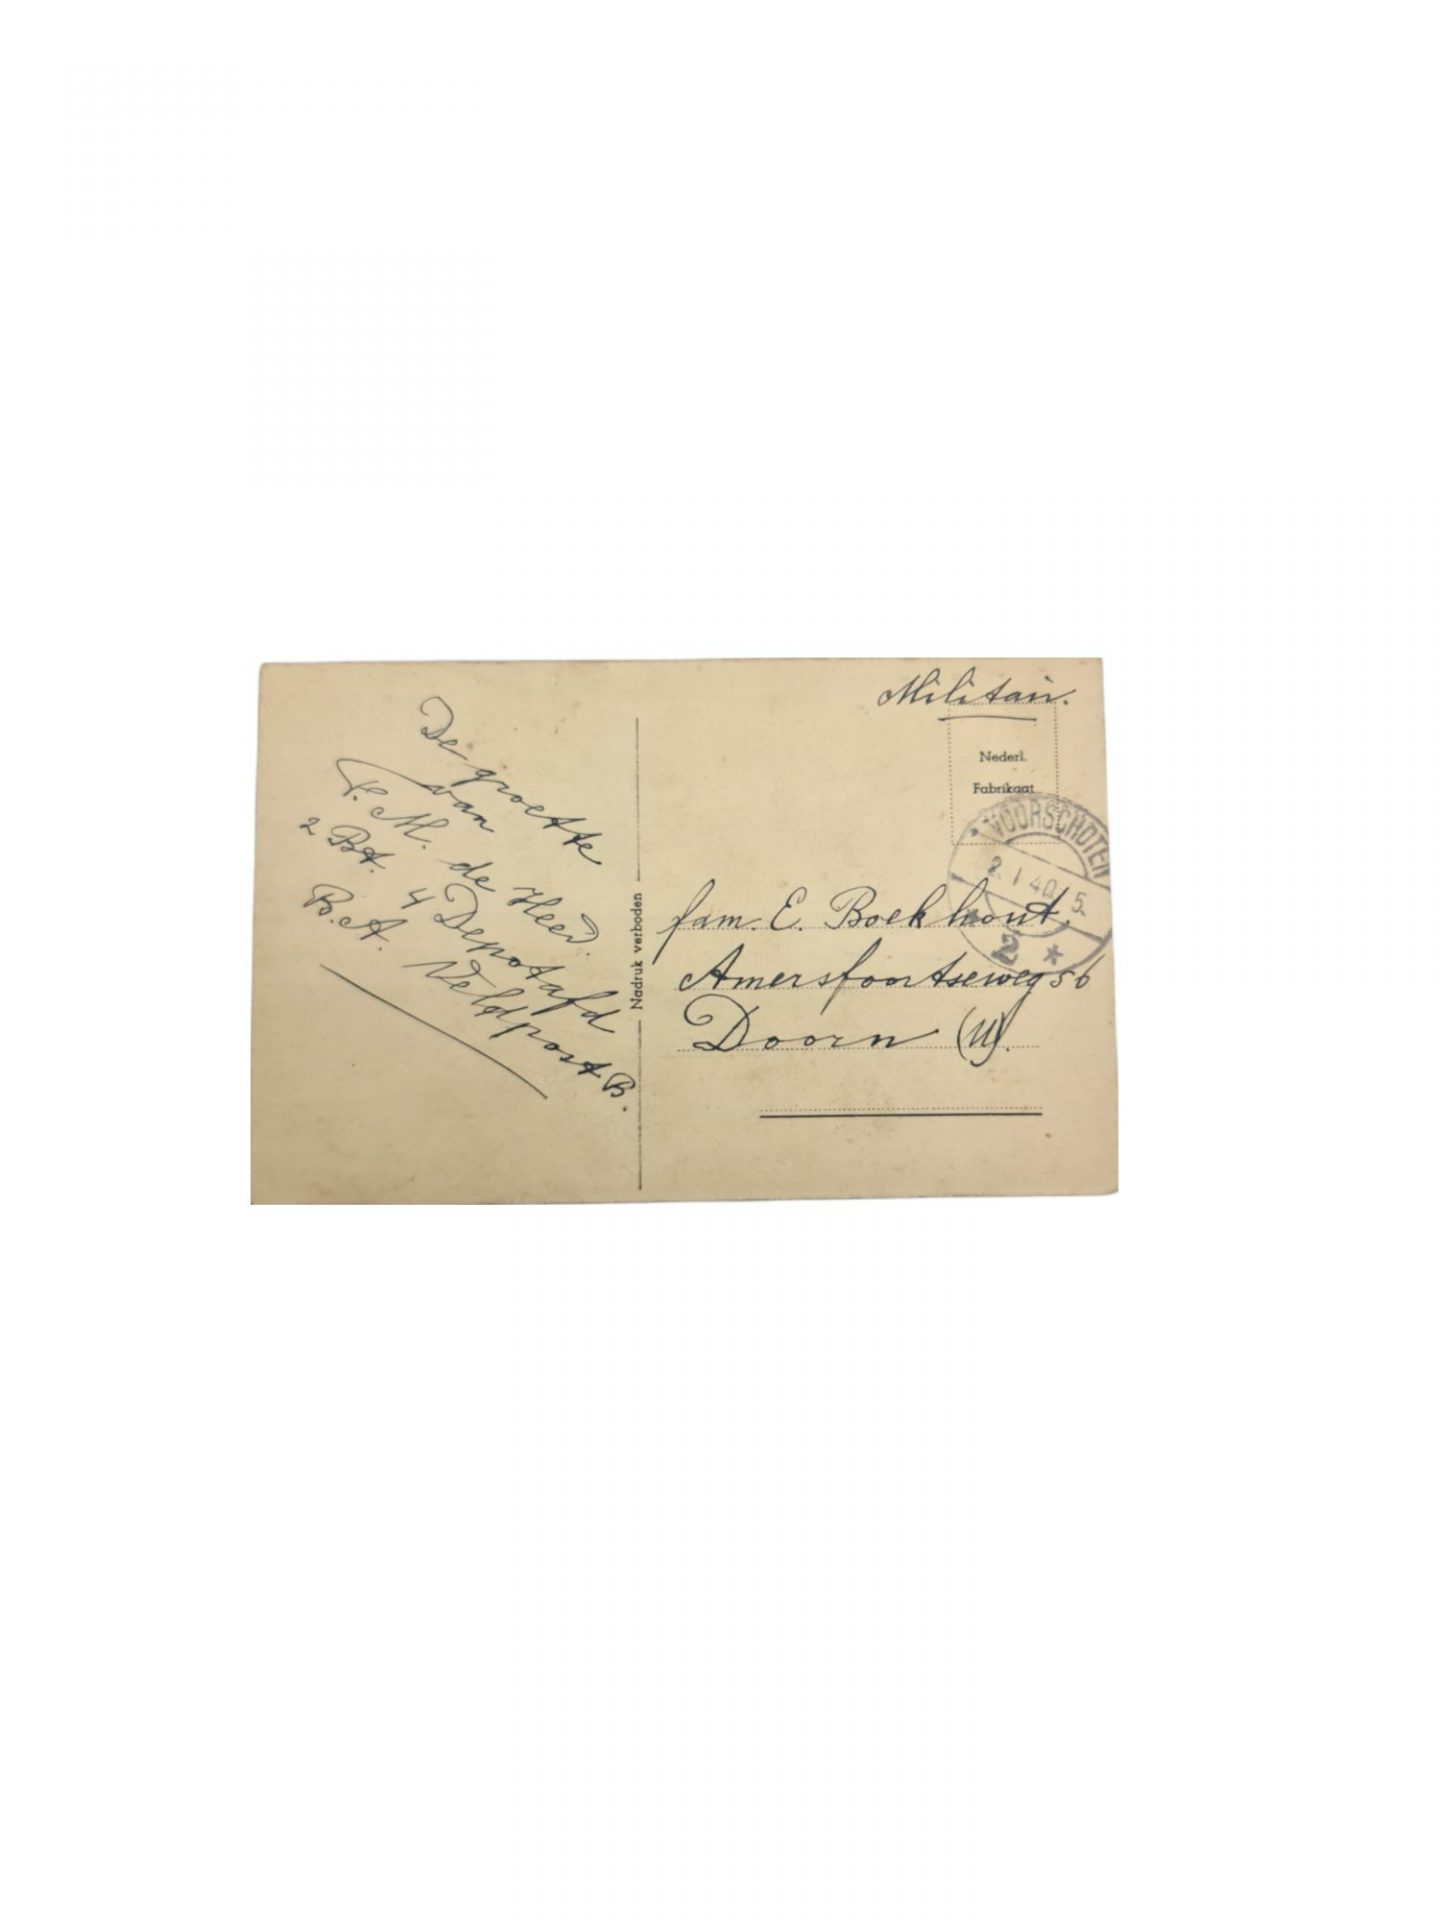 De groette
van
P. M. de Heer.
2 Bt. 4 Depotafd
B.A. Veldpost B.
Nadruk verboden
Militair.
Nederl.
Fabrikaat
VOORSCHOTEN
2. I 40 5.
2
fam. E. Boekhout,
Amersfoortseweg 56
Doorn (U).